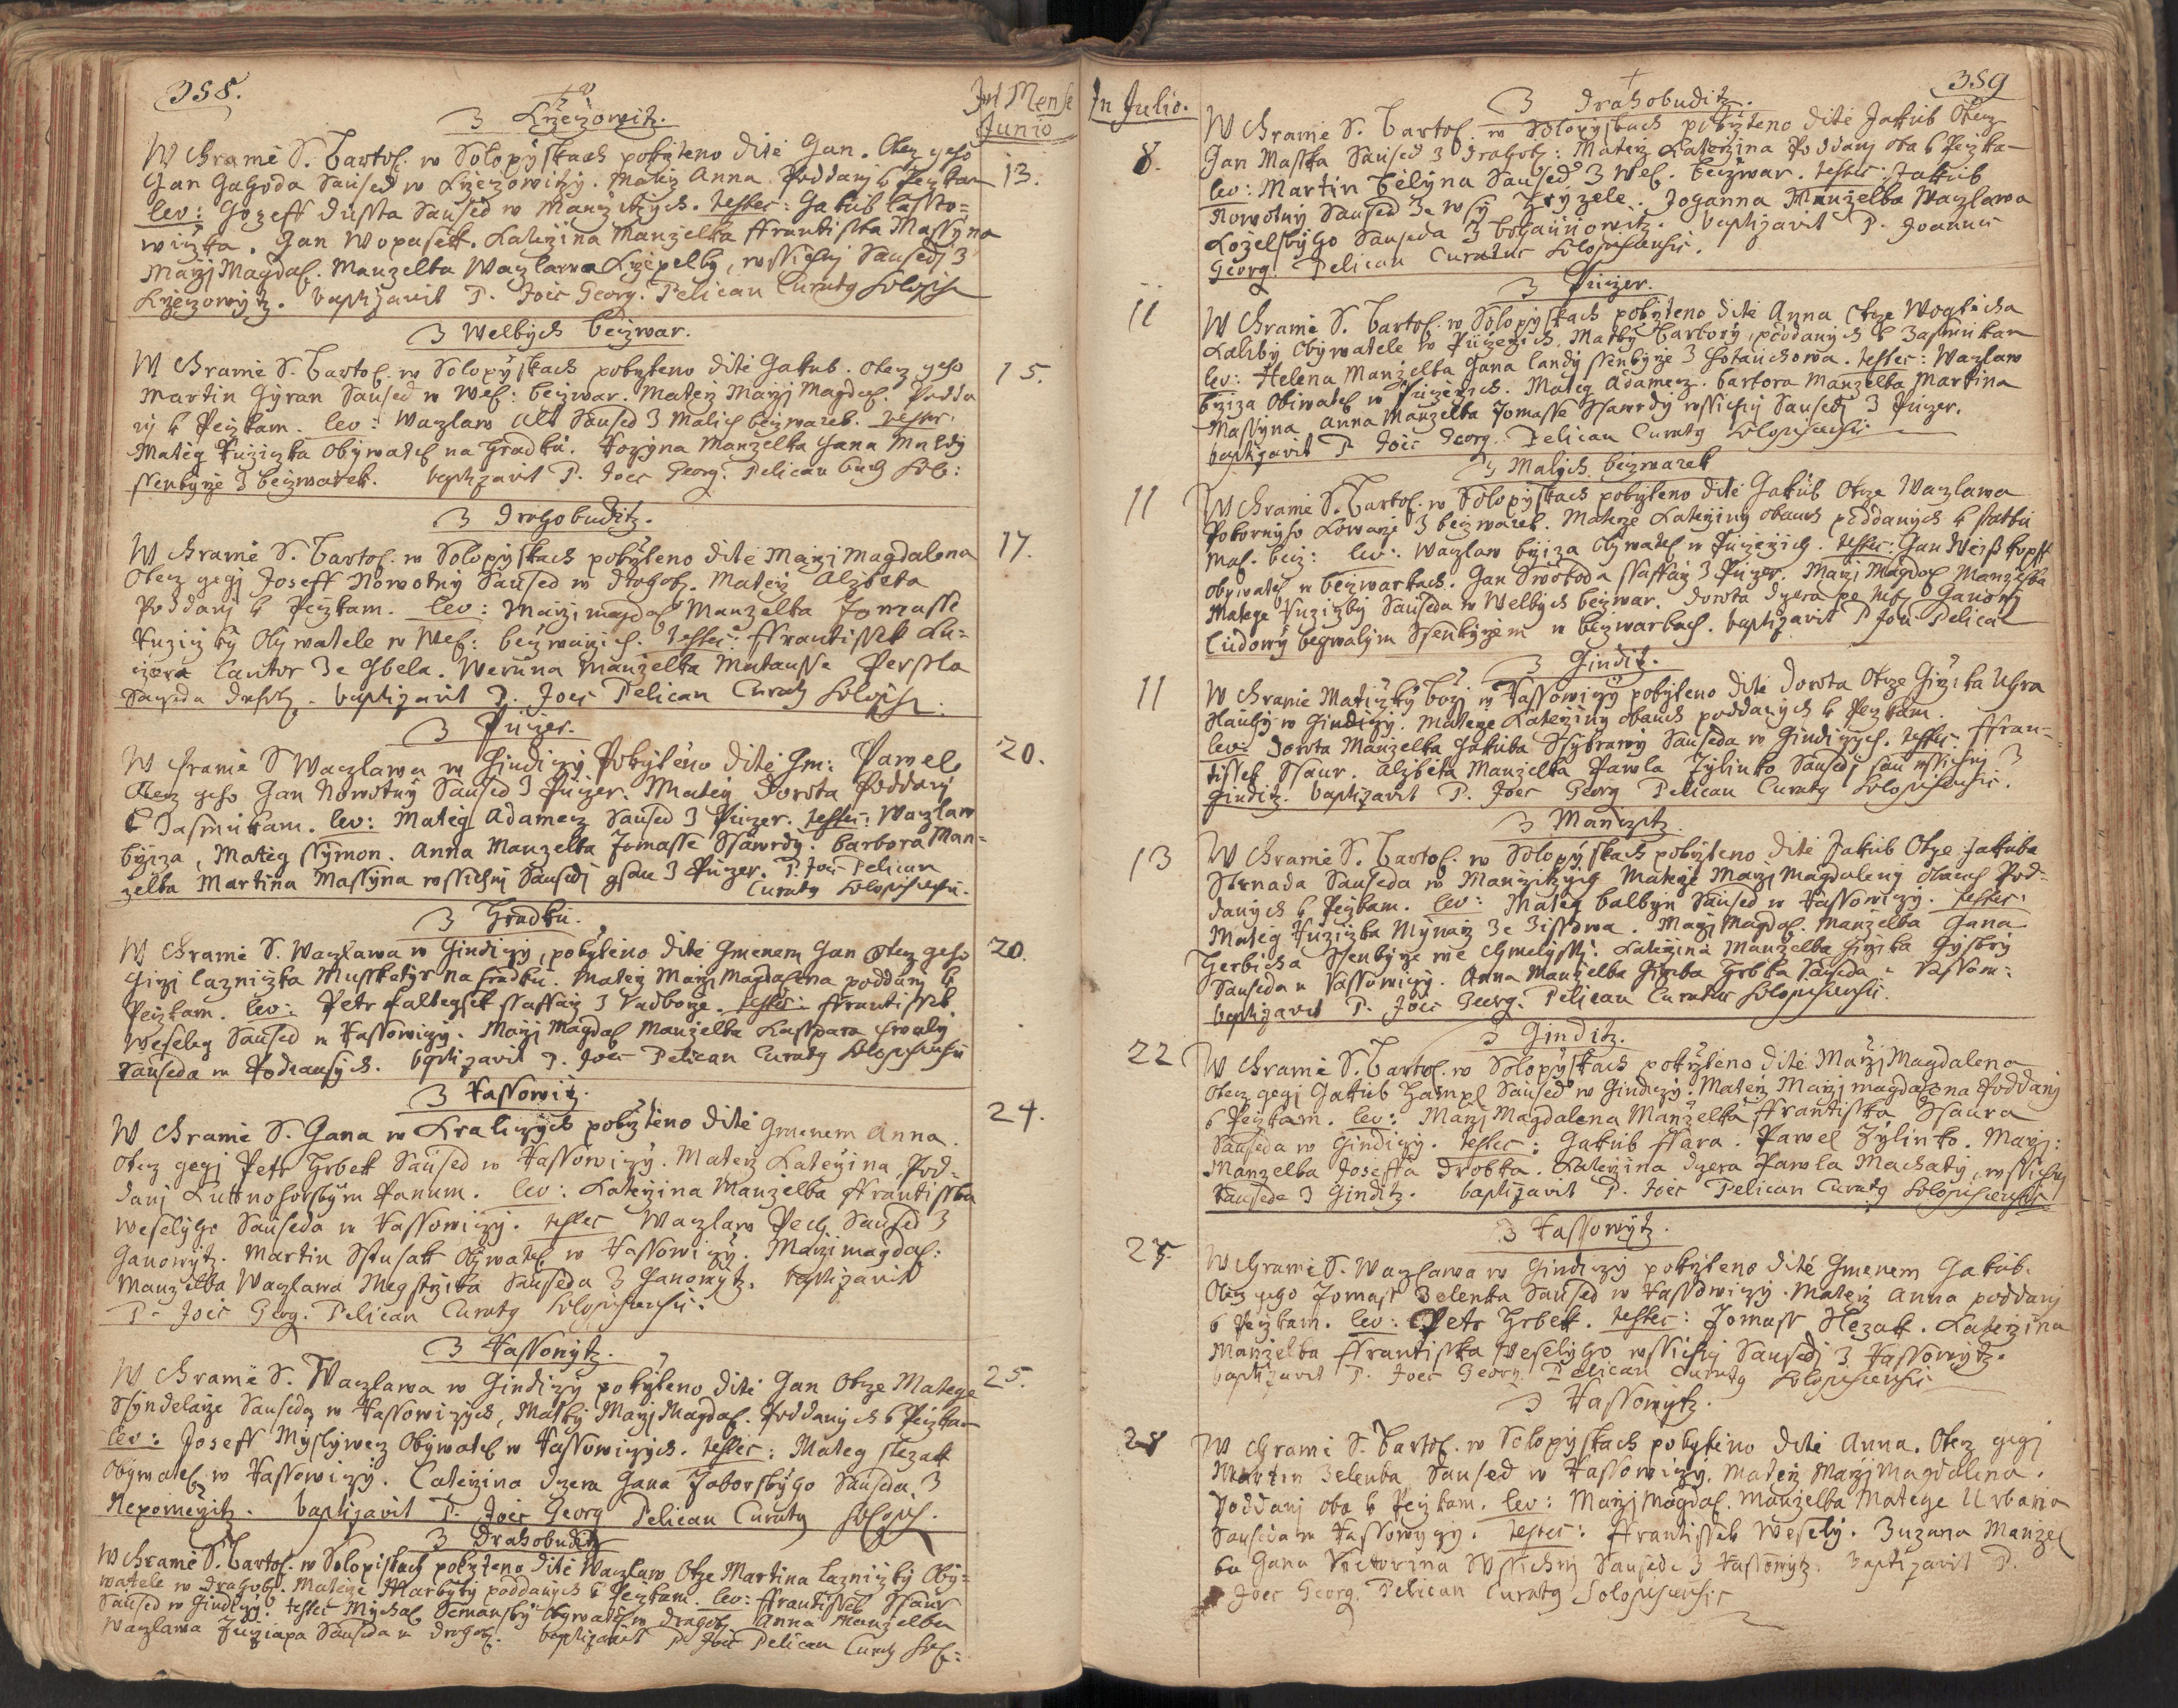 358.
In Mense
Junio
Z Krzeczowitz.
W Chramě S. Bartol. w Solopyskach pokřzteno ditě Gan. Otecz geho
Gan Gahoda Saused w Krzeczowiczy. Matez Anna. Poddanj k Peczkam
13.
lev: Gozeff Dussta Saused w Manžiczych. testes: Gakub
Gan Wopasek. Katerzina Manzelka Ffrantisska Massyna
Marzj Magdal. Manzelka Waczlawa Krzepelky, wssichnj Sausedj z
Krzeczowytz. baptizavit P. Joës Georg. Pelican Curatus Solopisc
Z Welkych beczwar.
W Chramě S. Bartol. w Solopyskach pokrzteno ditě Gakub. Otecz geho
15.
Martin Gyran Saused w Wel: beczwar. Materz Marzj Magdal. Podda
nj k Peczkam. lev: Waczlaw Saused z Malich beczwarek. testes:
Matěg Ružiczka Obywatel na Hradku. Rozyna Manzelka Gana
ssenkyrze z beczwarek. baptizavit P. Joës Georg. Pelican Sol:
Z Drahobuditz.
W Chramě S. Bartol. w Solopyskach pokrzteno ditě Marzj Magdalena
17.
Otecz gegj Joseff Nowotny Saused w Drahob. Materz Alzběta
Poddanj k Peczkam. lev: Marzj Magdal Manzelka Tomasse
Ruziczky Obywatele w Wel: beczwarich. testes: Ffrantissek Ku=
czera Cantor ze Zbela. Weruna Manzelka Matausse
Sauseda baptizavit P. Joës Pelican Curatus Solopisc.
Z Puczer.
W Chramě S Waczlawa w Gindiczy Pokrztěno ditě Gm: Pawel
20.
Otecz geho Gan Nowotny Saused z Puczer. Materz Dorota Poddanj
k Zasmukam. lev: Matěg Adamecz Saused z Puczer. testes: Waczlaw
byrza, Matěg Ssymon. Anna Manzelka Tomasse Ssawrdy. Barbora Man=
zelka Martina Massyna wssichnj Sausedj gsau z Puczer. P. Joës Pelican
Curatus Solopiscensis.
Z Hradku.
W Chramě S. Waczlawa w Gindiczy, pokrztěno ditě Gmenem Gan Otecz geho
20.
Girzj Lazniczka Musskatyr na Hradku. Materz Marzj Magdalena poddanj k
Peczkam. lev: Petr ssaffarz z Radborze. testes: Ffrantissek
Wesely Saused w Wassowiczy. Marzj Magdal Manzelka Kasspara
Sauseda w baptizavit P. Joës Pelican Curatus Solopiscensis
Z Wassowitz.
W Chramě S. Gana w Kraliczych pokrztěno ditě Gmenem Anna.
24.
Otecz gegj Petr Hrbek Saused w Wassowiczy. Materz Katerzina Pod=
danj Kuttnohorskym Panum. lev: Katerzina Manzelka Ffrantisska
Weselyho Sauseda w Wassowiczy. testes Waczlaw Pech Saused z
Ganowytz. Martin Obywatel w Wassowiczy. Marzj Magdal:
Manzelka Waczlawa Megstrzika Sauseda z Ganowytz. baptizavit
P. Joës Georg. Pelican Curatus Solopiscensis.
Z Wassowytz.
W Chramě S. Waczlawa w Gindiczy pokrzteno ditě Gan Otcze Matege
25.
Ssyndelarze Sauseda w Wassowiczych, Matky Marzj Magdal. Poddanych k Peczkam
lev: Joseff Myslywecz Obywatel w Wassowiczych. testes: Mateg Slezak
Obywatel w Wassowiczy. Caterzina dczera Gana Zaborskyho Sauseda z
Nepomerzitz. baptizavit P. Joës Georg Pelican Curatus Solopis.
Z Drahobuditz
W Chramě S. Bartol. w Solopiskach pokrzteno ditě Waczlaw Otcze Martina Lazniczky Oby=
watele w Drahob. Materze Markyty poddanych k Peczkam. lev: Ffrantissek Ssaur
Saused w Gindiczy. testes Mychal Semansky Obywatel w Drahob. Anna Manzelka
Waczlawa Sauseda w Drahob. baptizavit P. Joës Pelican Curatus Sol:
359
In Julio.
Z Drahobuditz.
W Chramě S. Bartol. w Solopyskach pokrzteno ditě Jakub Otecz
8.
Gan Masska Saused z Drahob: Materz Katerzina Poddanj oba k Peczka=
lev: Martin Bělyna Saused z Wel. beczwar. testes: Jakub
Nowotny Saused ze wsy Joganna Manzelka Waczlawa
Kozelskyho Sauseda z Bohaunowitz. baptizavit P. Joannes
Georg. Pelican Curatus Solopiscensis.
Z Puczer.
11
W Chramě S. Bartol. w Solopyskach pokrzteno ditě Anna Otcze Wogticha
Kalixy Obywatele w Puczerzich. Matky Barbory, poddanych k Zasmukam
lev: Helena Manzelka Gana Landy ssenkyrze z Hotauchowa. testes: Waczlaw
byrza Obiwatel w Puczerzich. Matěg Adamecz. Barbora Manzelka Martina
Massyna Anna Manzelka Tomasse Ssawrdy wssichnj Sausedj z Puczer.
baptizavit P. Joës Georg. Pelican Curatus Solopiscensis
Z Malych beczwarek
11
W Chramě S. Bartol. w Solopyskach pokrzteno ditě Gakub Otcze Waczlawa
Pokornyho Kowarze z beczwarek. Materze Katerziny obauch poddanych k statku
Mal. becz: lev: Waczlaw byrza Obywatel w Puczerzich. testes: Gan Weisskopff
Obywatel w beczwarkach. Gan Swoboda ssaffarz z Puczer. Marzj Magdal Manzelka
Matege Ruziczky Sauseda w Welkych beczwar. Dorota dczera po Neb. Ganowj
Cudowy beywalym Ssenkyrzem w beczwarkach. baptizavit P Joës Pelican
Z Gindicz.
11
W Chramě Maticzky bozj w Wassowiczy pokrzteno ditě Dorota Otcze Girzika Uhra
Hauby w Gindiczy. Materze Katerziny obauch poddanych k Peczkam.
lev: Dorota Manzelka Jakuba Sauseda w Gindiczych. testes: Ffran=
tissek Ssaur. Alzběta Manzelka Pawla Zylinko Sausedj sau wssichnj z
Ginditz. baptizavit P. Joës Georg Pelican Curatus Solopiscensis.
Z Manczitz.
13
W Chramě S. Bartol. w Solopyskach pokrzteno ditě Jakub Otcze Jakuba
Strnada Sauseda w Manžiczych Materze Marzj Magdaleny obauch Pod=
danych k Peczkam. lev: Matěg Balbyn Saused w Wassowiczy. testes:
Matěg Ruziczka Mynarz ze Zissowa. Marzj Magdal. Manzelka Gana
Gerbicha Ssenkyrze we Chmelysstj. Katerzina Manzelka Girzika Bystry
Sauseda w Wassowiczy. Anna Manzelka Girzika Hrbka Sauseda w Wassow:
baptizavit P. Joës Georg. Pelican Curatus Solopiscensis.
Z Ginditz.
22
W Chramě S. Bartol. w Solopyskach pokrzteno ditě Marzj Magdalena
Otecz gegj Gakub Hampl Saused w Gindiczy. Materz Marzj Magdalena Poddanj
k Peczkam. lev: Marzj Magdalena Manzelka Ffrantisska Ssaura
Sauseda w Gindiczy. testes: Gakub Ffara. Pawel Zylinko. Marzj:
Manzelka Joseffa Drobka. Katerzina dczera Pawla Machaty, wssichnj
Sausede z Ginditz. baptizavit P. Joës Pelican Curatus Solopiscensis
Z Wassowytz.
25
W Chramě S. Waczlawa w Gindiczy pokrzteno ditě Gmenem Gakub.
Otecz gego Tomass Zelenka Saused w Wassowiczy. Materz Anna poddanj
k Peczkam. lev: Petr Hrbek. testes: Tomass Slezak. Katerzina
Manzelka Ffrantisska Weselyho wssichnj Sausedj z Wassowytz.
baptizavit P. Joës Georg. Pelican Curatus Solopiscensis
Z Wassowytz.
28
W Chramě S. Bartol. w Solopyskach pokrzteno ditě Anna. Otecz gegj
Martin Zelenka Saused w Wassowiczy. Materz Marzj Magdalena.
Poddanj oba k Peczkam. lev: Marzj Magdal. Manzelka Matege Urbana
Sauseda w Wassowyczy. testes: Ffrantissek Wesely. Zuzana Manzel
ka Gana Victorina Wssichnj Sausede z Wassowytz. Baptizavit P.
Joës Georg. Pelican Curatus Solopiscensis